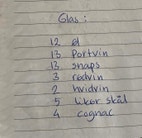 Glas:
12 øl
13 Portvin
13 snaps
3 rødvin
2 hvidvin
5 likør skål
4 cognac